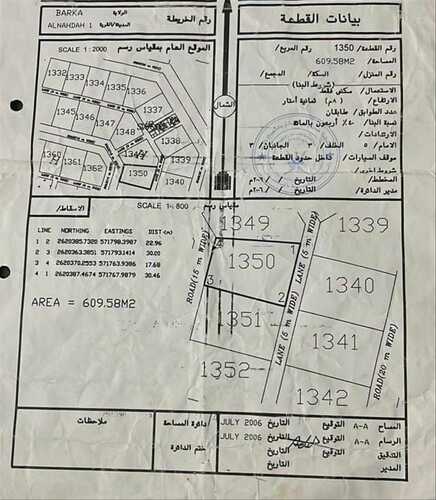 BARKA
الولاية
ALNAHDAH 1
المدينة/القرية
رقم الخريطة
بيانات القطعة
الموقع العام بمقياس رسم
SCALE 1: 2000
1332
1333
1334
1335
1336
1337
1345
1346
1347
1348
1338
1339
1360
1361
1362
1349
1350
1340
الشمال
رقم القطعة/ 1350 رقم المربع/
المساحة/ 609.58M2
(شروط البنا)
رقم المنزل/ السكة/ المجمع/
الاستعمال/ سكني فقط
الارتفاع/ (٨م) ثمانية أمتار
عدد الطوابق/ طابقان
نسبة البنا/ ٤٠٪ أربعون بالماه
الارتدادات/
الامام/ ٥ الخلف/ ٣ الجانبان/ ٣
موقف السيارات/ داخل حدود القطعة
شروط اخرى/
المخطط/ التاريخ / /٢٠٠٦م
مدير الدائرة/ التاريخ / /٢٠٠٦م
الاسقاط/
SCALE 1:800
مقياس رسم
LINE NORTHING EASTINGS DIST(m)
1 2 2620385.7320 571798.3987 22.96
2 3 2620363.3851 571793.1414 30.00
3 4 2620370.2553 571763.9386 17.68
4 1 2620387.4674 571767.9879 30.46
AREA = 609.58M2
1349
1339
4
1
1350
ROAD(15 m WIDE)
LANE (5 m WIDE)
1340
3
2
1351
1341
LANE (5 m WIDE)
1352
1342
ROAD(20 m WIDE)
ملاحظات
دائرة المساحة
ختم الدائرة
المساح A-A التوقيع التاريخ JULY 2006
الرسام A-A التوقيع التاريخ JULY 2006
التدقيق التوقيع التاريخ
المدير التوقيع التاريخ